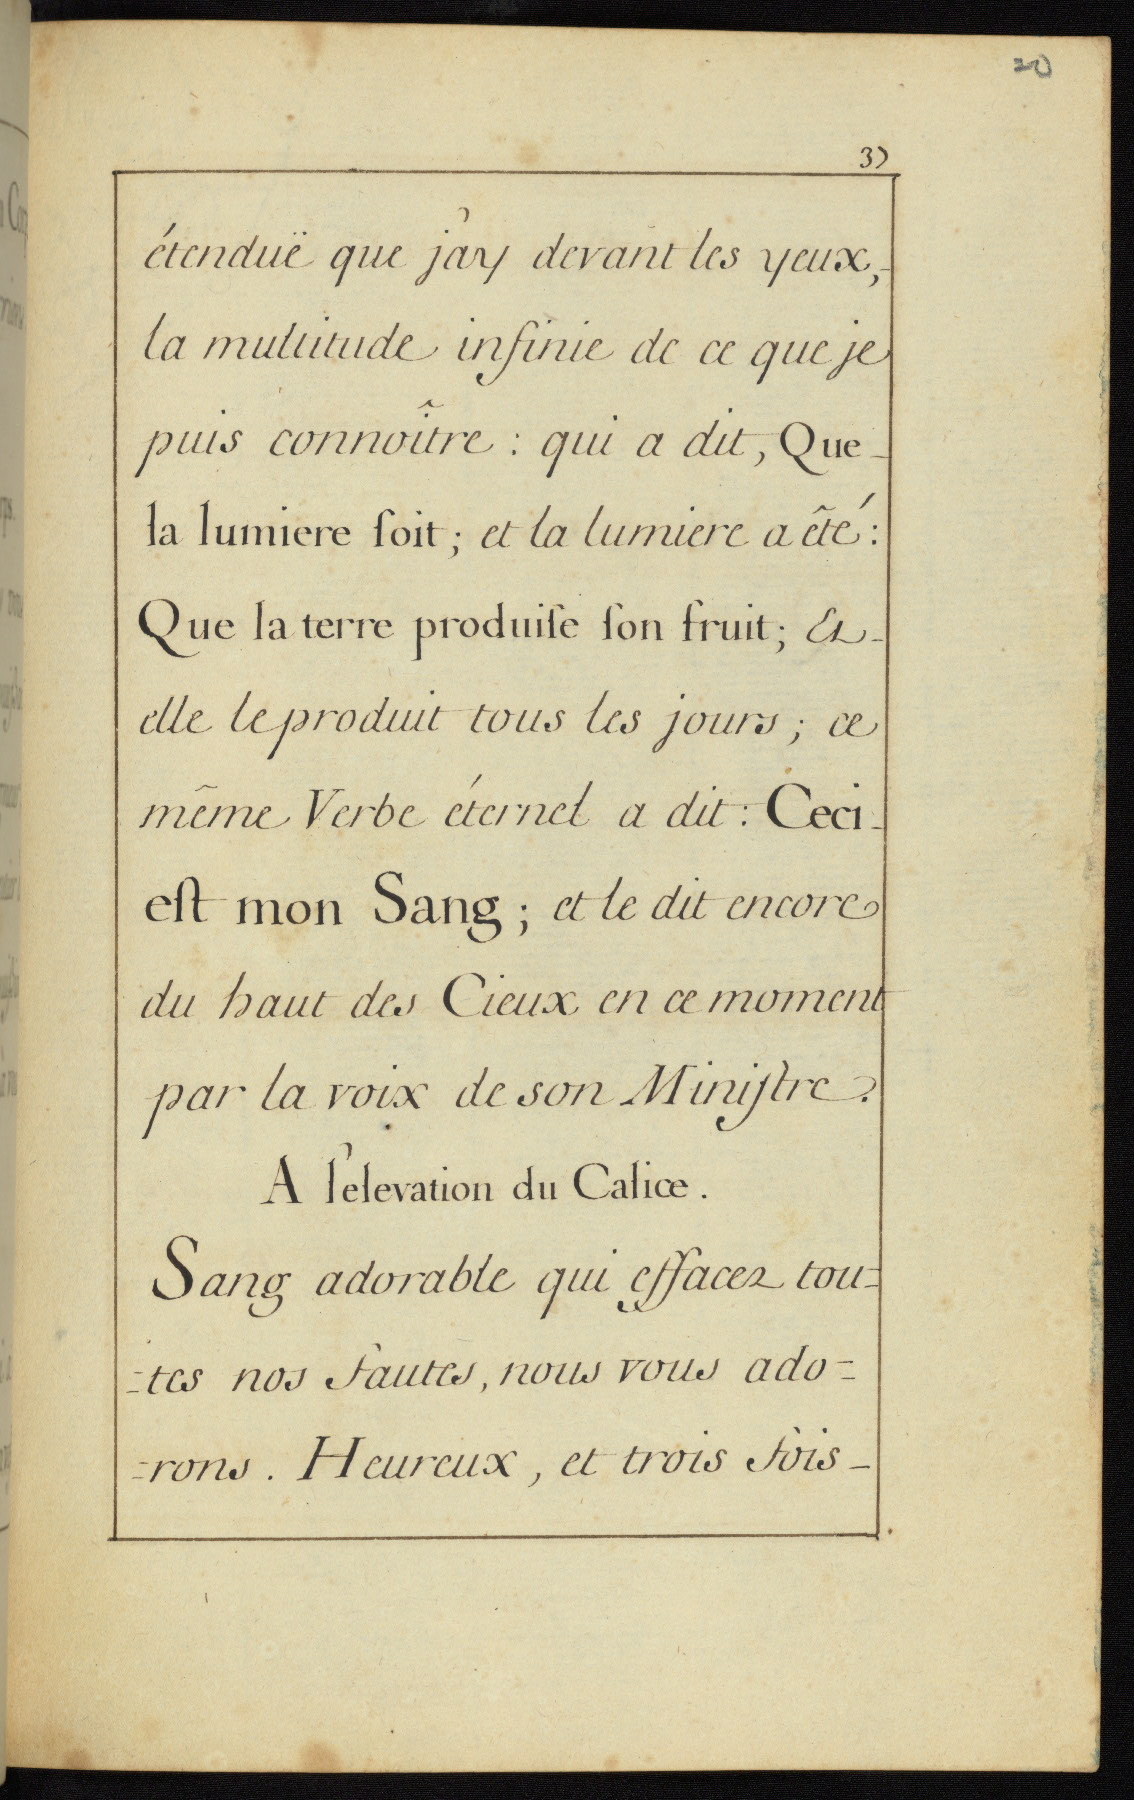 20
37
étenduë que j'ay devant les yeux,
la multitude infinie de ce que je
puis connoître : qui a dit, Que
la lumiere ſoit ; et la lumiere a êté :
Que la terre produiſe ſon fruit ; Et
elle le produit tous les jours ; ce
même Verbe éternel a dit : Ceci
eſt mon Sang ; et le dit encore
du haut des Cieux en ce moment
par la voix de son Miniſtre.
A l'elevation du Calice .
Sang adorable qui effacez tou=
=tes nos fautes, nous vous ado=
=rons . Heureux, et trois fois